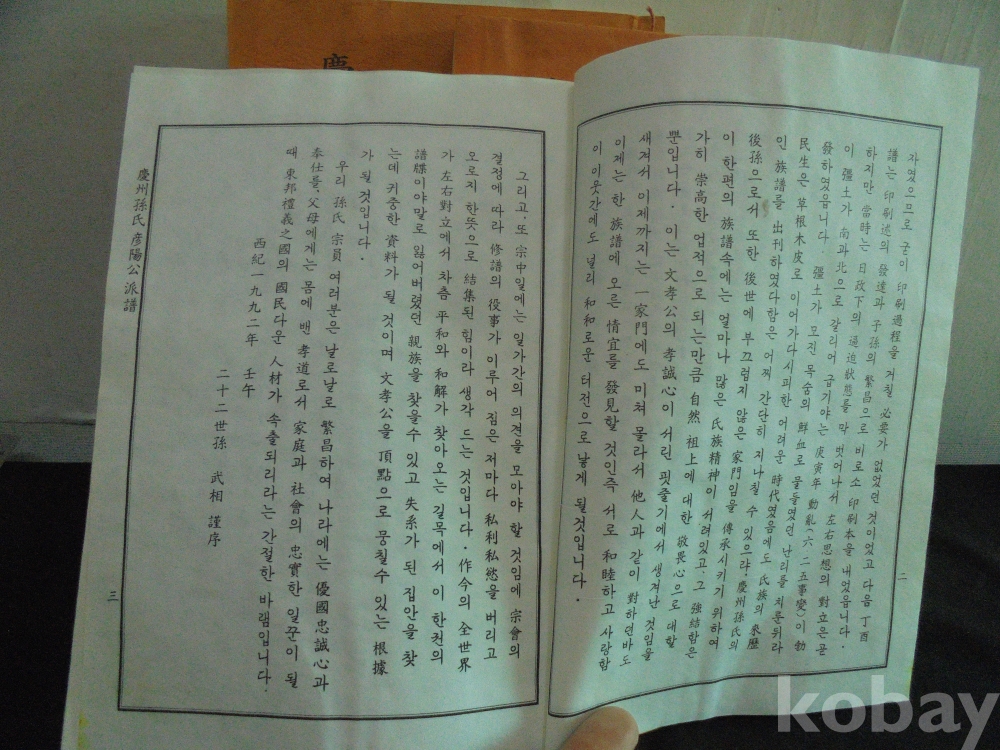 慶
자였으므로 굳이 印刷過程을 거칠 必要가 없었던 것이었고 다음 丁酉
譜는 印刷述의 發達과 子孫의 繁昌으로 비로소 印刷本을 내었읍니다.
하지만 當時는 日政下의 逼迫狀態를 막 벗어나서 左右思想의 對立은 끝
이 疆土가 南과 北으로 갈리어 급기야는 庚寅年 動亂(六·二五事變)이 勃
發하였읍니다 疆土가 모진 목숨의 鮮血로 물들였던 난리를 치룬뒤라
民生은 草根木皮로 이어가다시피한 어려운 時代였음에도 氏族의 來歷
인 族譜를 出刊하였다함은 어찌 간단히 지나칠 수 있으랴. 慶州孫氏의
後孫으로서 또한 後世에 부끄럽지 않은 家門임을 傳承시키기 위하여
이 한편의 族譜속에는 얼마나 많은 氏族精神이 서려있고 그 強結함은
가히 崇高한 업적으로 되는만큼 自然 祖上에 대한 敬畏心으로 대할
뿐입니다. 이는 文孝公의 孝誠心이 서린 핏줄기에서 생겨난 것임을
새겨서 이제까지는 一家門에도 미쳐 몰라서 他人과 같이 對하던바도
이제는 한 族譜에 오른 情宜를 發見할 것인즉 서로 和睦하고 사랑함
이 이웃간에도 널리 和和로운 터전으로 낳게 될것입니다.
二
그리고 또 宗中일에는 일가간의 의견을 모아야 할 것임에 宗會의
결정에 따라 修譜의 役事가 이루어 짐은 저마다 私利私慾을 버리고
오로지 한뜻으로 結集된 힘이라 생각 드는 것입니다. 作今의 全世界
가 左右對立에서 차츰 平和와 和解가 찾아오는 길목에서 이 한천의
譜牒이야말로 잃어버렸던 親族을 찾을수 있고 失系가 된 집안을 찾
는데 귀중한 資料가 될 것이며 文孝公을 頂點으로 뭉칠수 있는 根據
가 될 것입니다.
우리 孫氏 宗員 여러분은 날로날로 繁昌하여 나라에는 優國忠誠心과
奉仕를, 父母에게는 몸에 밴 孝道로서 家庭과 社會의 忠實한 일꾼이 될
때 東邦禮義之國의 國民다운 人材가 속출되리라는 간절한 바램입니다.
西紀一九九二年 壬午
二十二世孫 武相 謹序
慶州孫氏彦陽公派譜
三
kobay